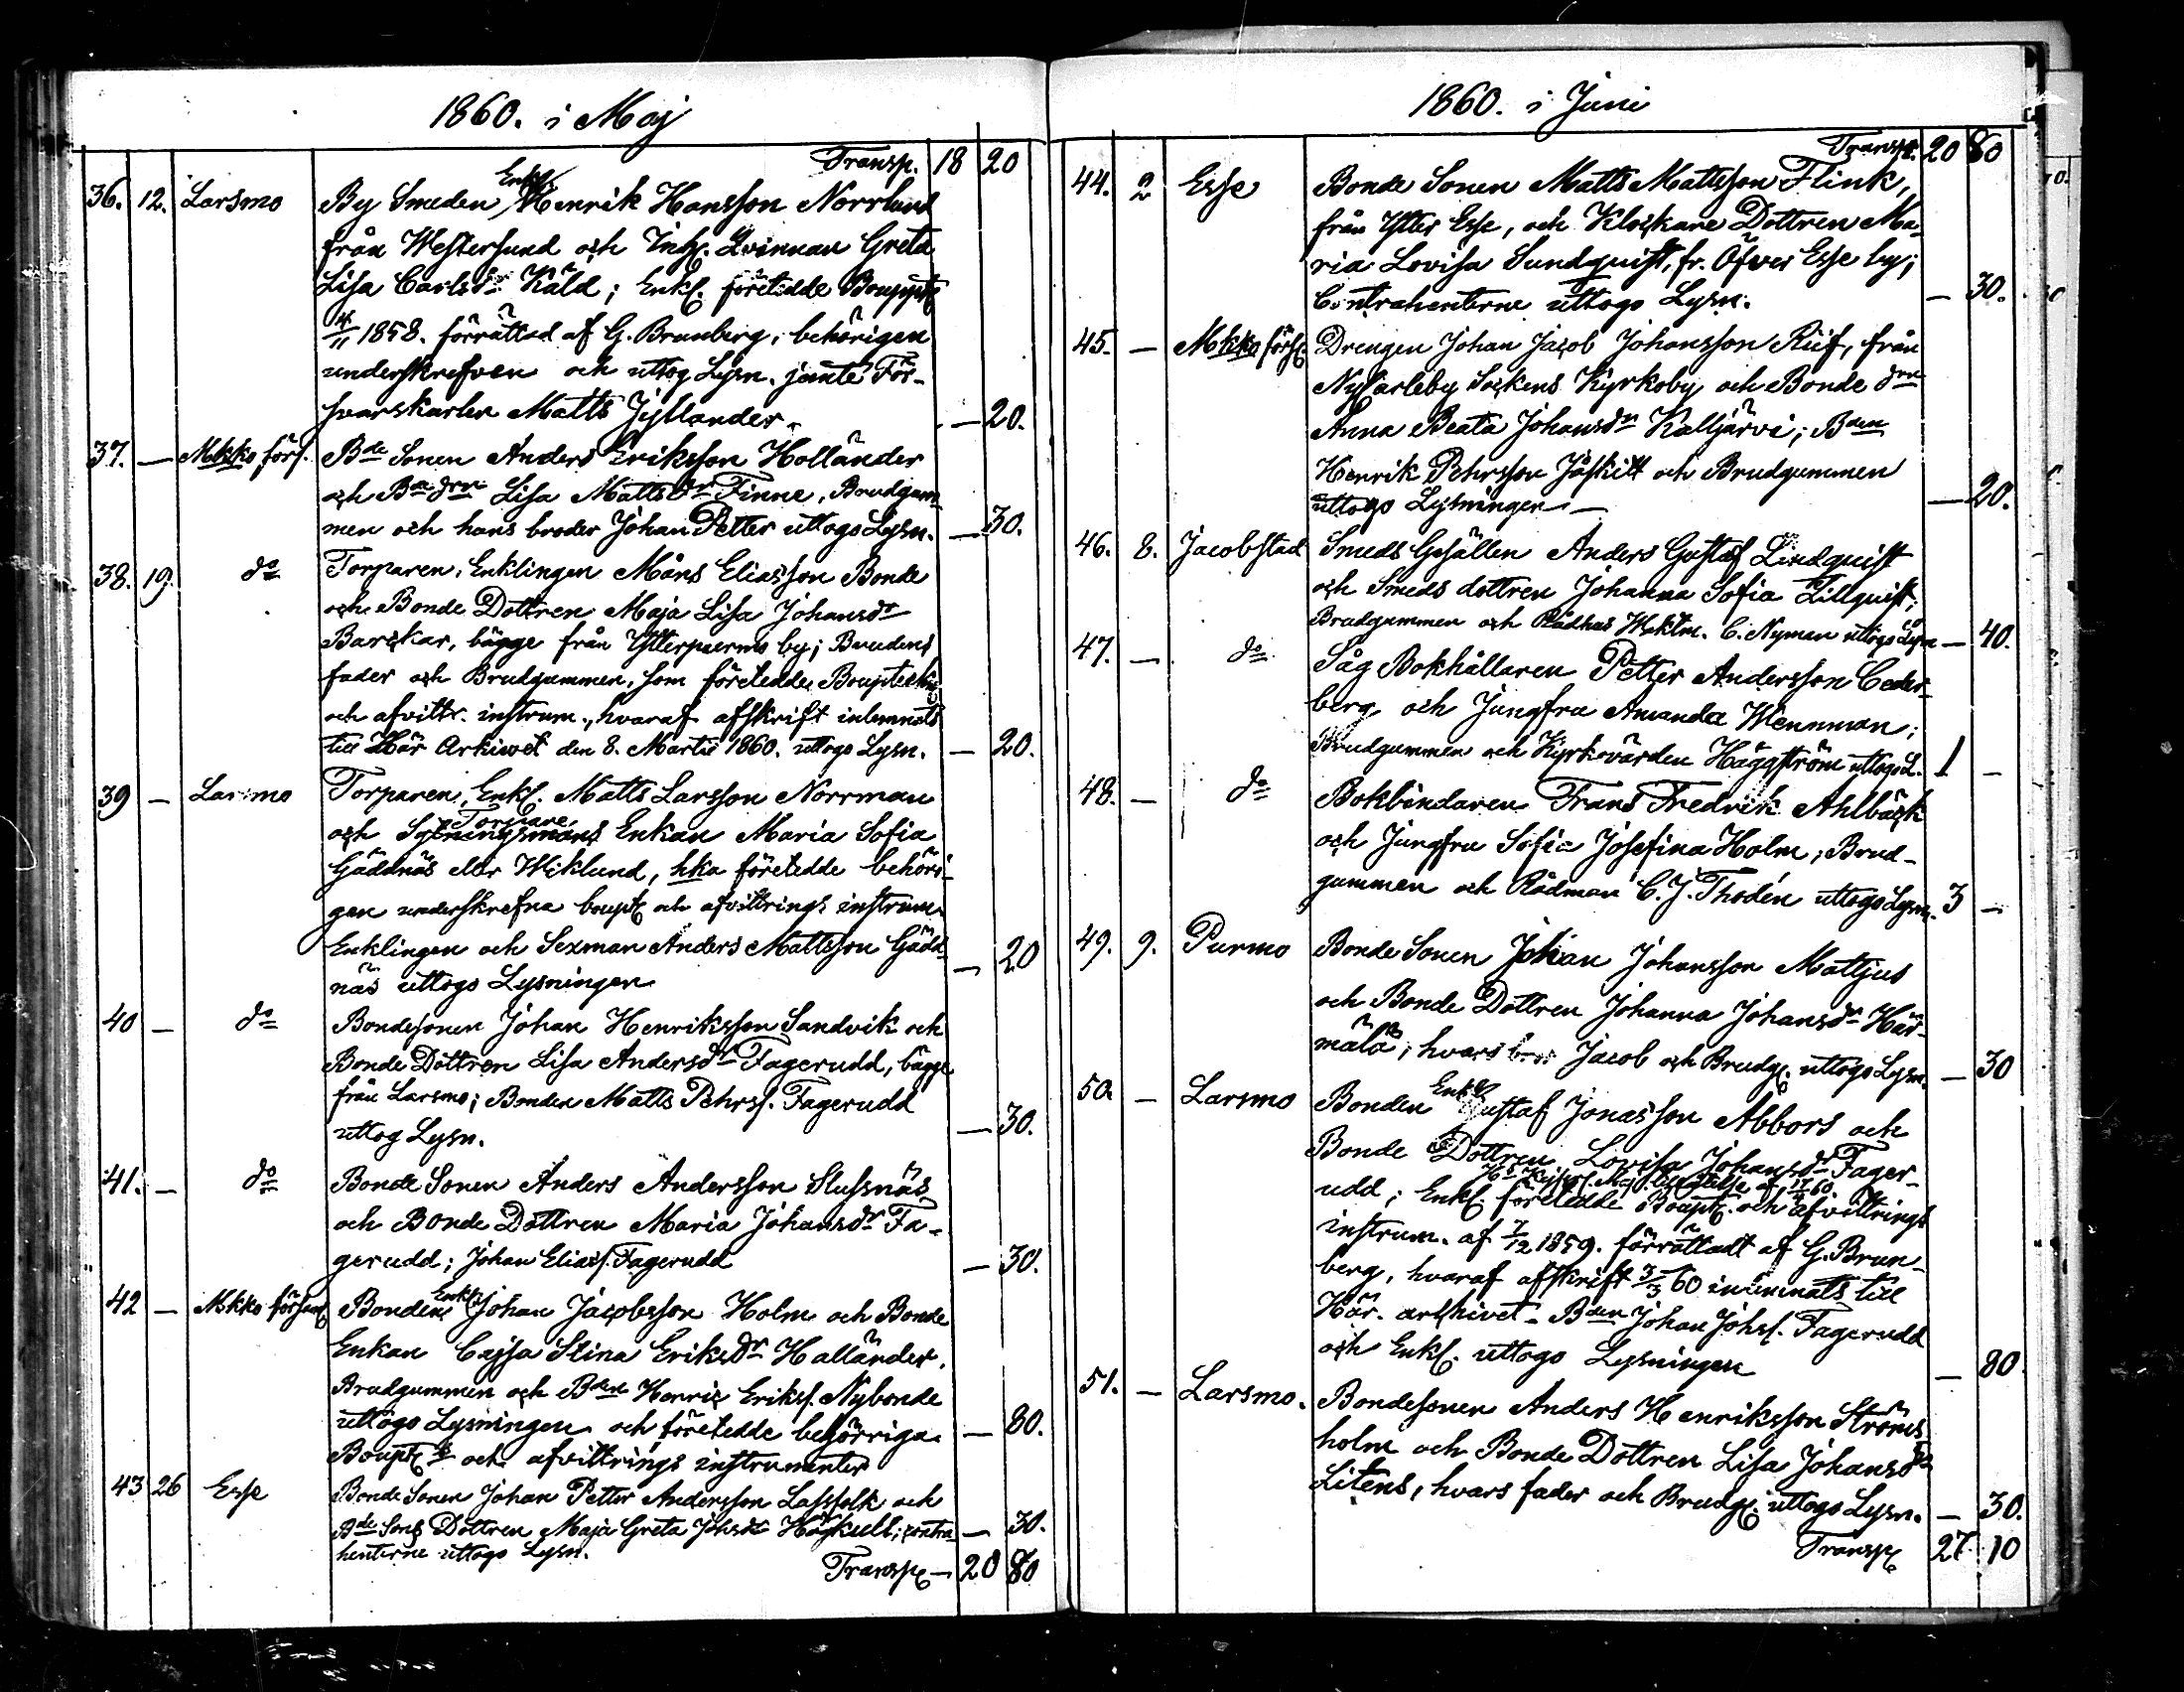 1860. i Maj
Transp. 18 20
36. 12. Larsmo By Smeden, Enkl. Henrik Hansson Norrlund
från Westersund och Inh. Qvinnan Greta
Lisa Carlsdr Käld; Enkl. företedde Bouppt
4/11 1858. förrättad af G. Brunberg, behörigen
underskrefven och uttog Lysn. jemte För-
svarskarlen Matts Jyllander. — 20.
37. — Mkko förs. Bde Sonen Anders Eriksson Holländer
och Bde drn Lisa Mattsdr Finne, Brudgum-
men och hans broder Johan Petter uttogo Lysn. — 30.
38. 19. do Torparen, Enklingen Måns Eliasson Bonde
och Bonde Dottren Maja Lisa Johansdr
Barckar, bägge från Ytterpurmo by; Brudens
fader och Brudgummen, som företedde Bouptekn
och afvittr. instrum., hvaraf afskrift inlemnats
till Här Arkivet den 8. Martii 1860. uttogo Lysn. — 20.
39 — Larsmo Torparen, Enkl. Matts Larsson Norrman
och Sytningsmans Torpare Enkan Maria Sofia
Gäddnäs eller Wiklund, hka företedde behöri-
gen underskrefna boupt och afvittrings instrum.
Enklingen och Sexman Anders Mattsson Gädd-
näs uttogo Lysningen — 20
40 — do Bondesonen Johan Henriksson Sandvik och
Bonde Dottren Lisa Andersdr Fagerudd, bägge
från Larsmo; Bonden Matts Pehrss. Fagerudd
uttog Lysn. — 30.
41. — do Bonde Sonen Anders Andersson Slussnäs
och Bonde Dottren Maria Johansdr Fa-
gerudd; Johan Eliass. Fagerudd — 30.
42 — Mkko församl Bonden Enkl. Johan Jacobsson Holm och Bonde
Enkan Cajsa Stina Eriksdr Halländer.
Brudgummen och Bden Henric Erikss. Nybonde
uttogo Lysningen och företedde behörriga — 80.
Boupt och afvittrings instrumenter
43 26 Esse Bonde Sonen Johan Petter Andersson Lassfolk och
Bde Sons Dottren Maja Greta Johsdr; contra- — 30.
henterne uttogo Lysn.
Transp — 20 80
1860. i Juni
Transp. 20 80
44. 2 Esse Bonde Sonen Matts Mattsson Flink,
från Ytter Esse, och Klockare Dottren Ma-
ria Lovisa Sundquist, fr. Öfver Esse by;
Contrahenterne uttogo Lysn. — 30.
45. — Mkko förs. Drengen Johan Jacob Johansson Riif, från
NyCarleby Sockens Kyrkoby och Bonde drn
Anna Beata Johansdr Kalljärvi; Bden
Henrik Pehrsson Jåskilt och Brudgummen
uttogo Lysningen — — 20.
46. 8. Jacobstad Smeds Gesällen Anders Gustaf Lindquist
och Smeds dottren Johanna Sofia Lillquist;
Brudgummen och Rådhus Waktm. C. Nyman uttogo Lysn — 40.
47. — do Såg Bokhållaren Petter Andersson Ceder-
berg och Jungfru Amanda Wennman;
Brudgummen och Kyrkovärden Häggström uttogo L. 1 —
48. — do Bokbindaren Frans Fredrik Ahlbäck
och Jungfru Sofia Josefina Holm; Brud-
gummen och Rådman C. J. Thodén uttogo Lysn. 3 —
49. 9. Purmo Bonde Sonen Johan Johansson Mattjus
och Bonde Dottren Johanna Johansdr Här-
mälä; hvars bror Jacob och Brudg. uttogo Lysn. — 30
50. — Larsmo Bonden Enkl Gustaf Jonasson Abbors och
Bonde Dottren Lovisa Johansdr Fager-
udd; Enkl. företedde Boupt. och afvittrings
instrum. af 7/12 1859. förrättadt af G. Brun-
berg, hvaraf afskrift 3/3 60 inlemnats till
Här. archivet. Bden Johan Johss. Fagerudd
och Enkl. uttogo Lysningen — 80
51. — Larsmo. Bondesonen Anders Henriksson Ströms
holm och Bonde Dottren Lisa Johansdr
Liténs, hvars fader och Brudg. uttogo Lysn. — 30.
Transp 27 10